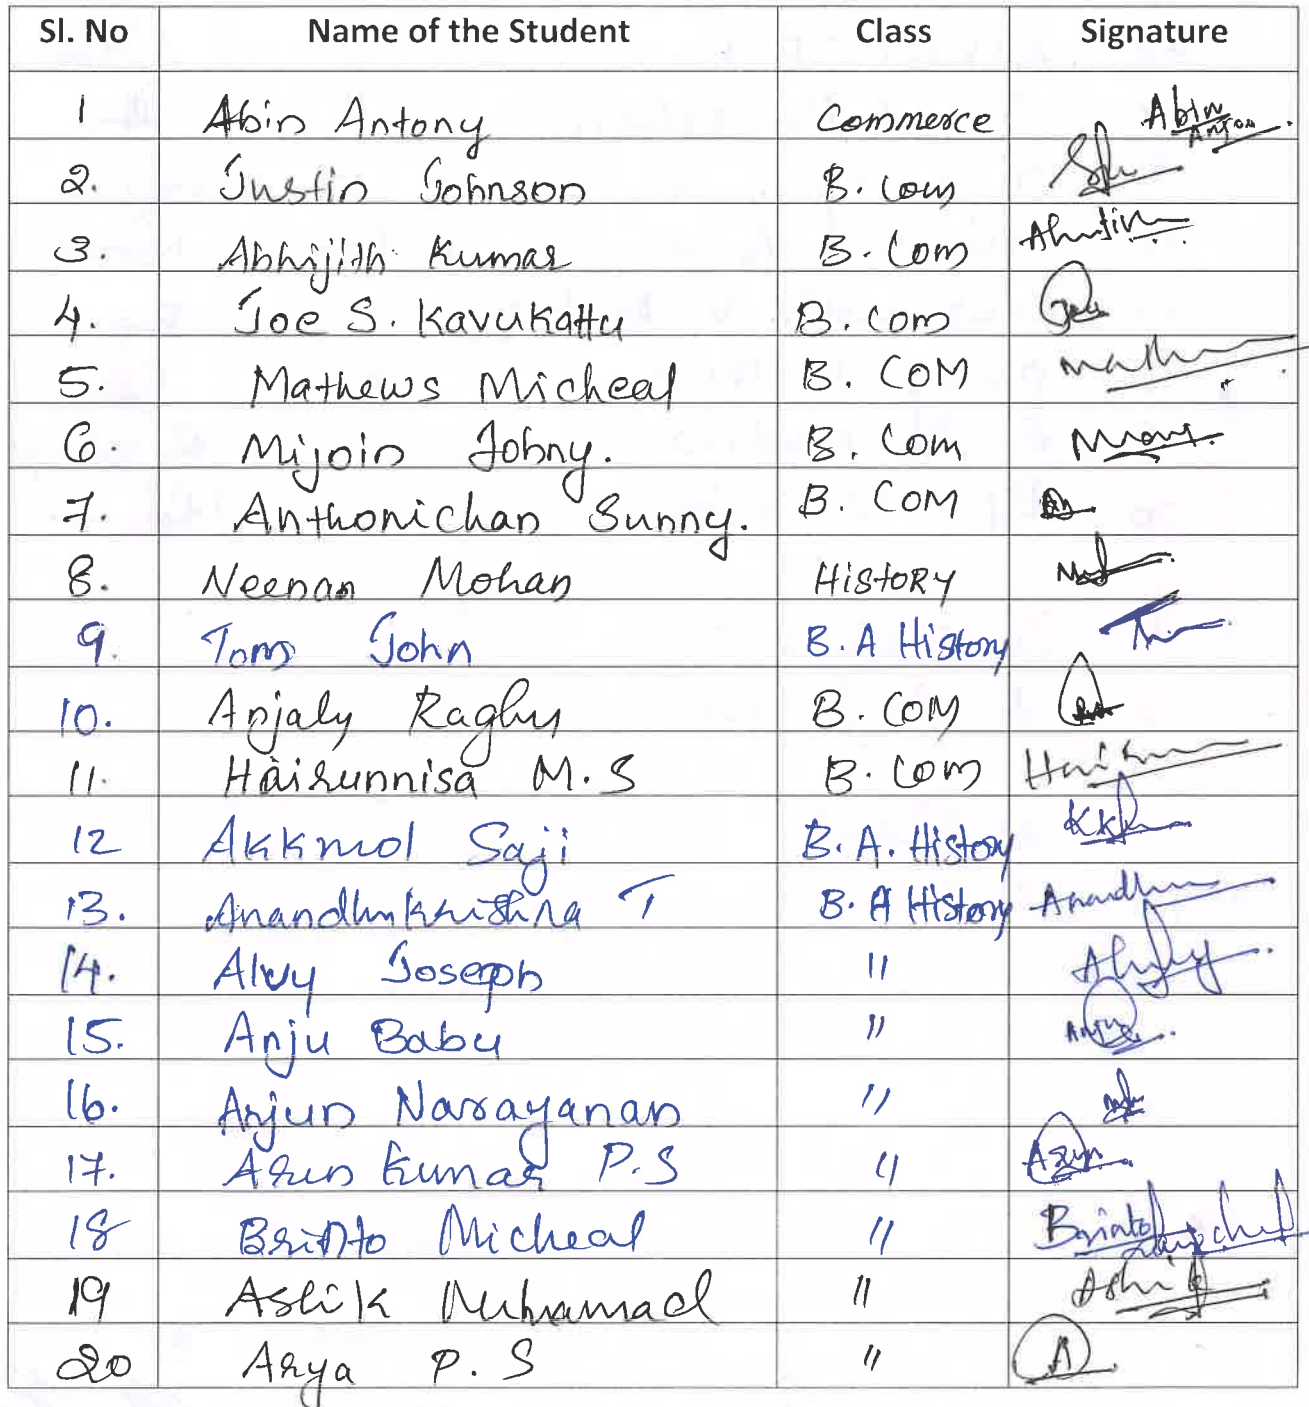 Sl. No Name of the Student Class Signature
1 Abin Antony Commerce Abin Antony
2. Justin Johnson B. Com
3. Abhijith Kumar B. Com
4. Joe S. Kavukattu B. Com
5. Mathews Micheal B. COM
6. Mijoin Johny. B. Com
7. Anthonichan Sunny. B. COM
8. Neenan Mohan HistoRY
9. Tom John B. A History
10. Anjaly Raghu B. COM
11. Hairunnisa M. S B. Com
12 Akkmol Saji B. A. History
13. Anandhukrishna T B. A History Anandhu
14. Alvy Joseph "
15. Anju Babu " Anju
16. Arjun Narayanan "
17. Arun Kumar P. S " Arun
18 Brinto Micheal "
19 Ashik Muhamad " Ashik
20 Arya P. S " A